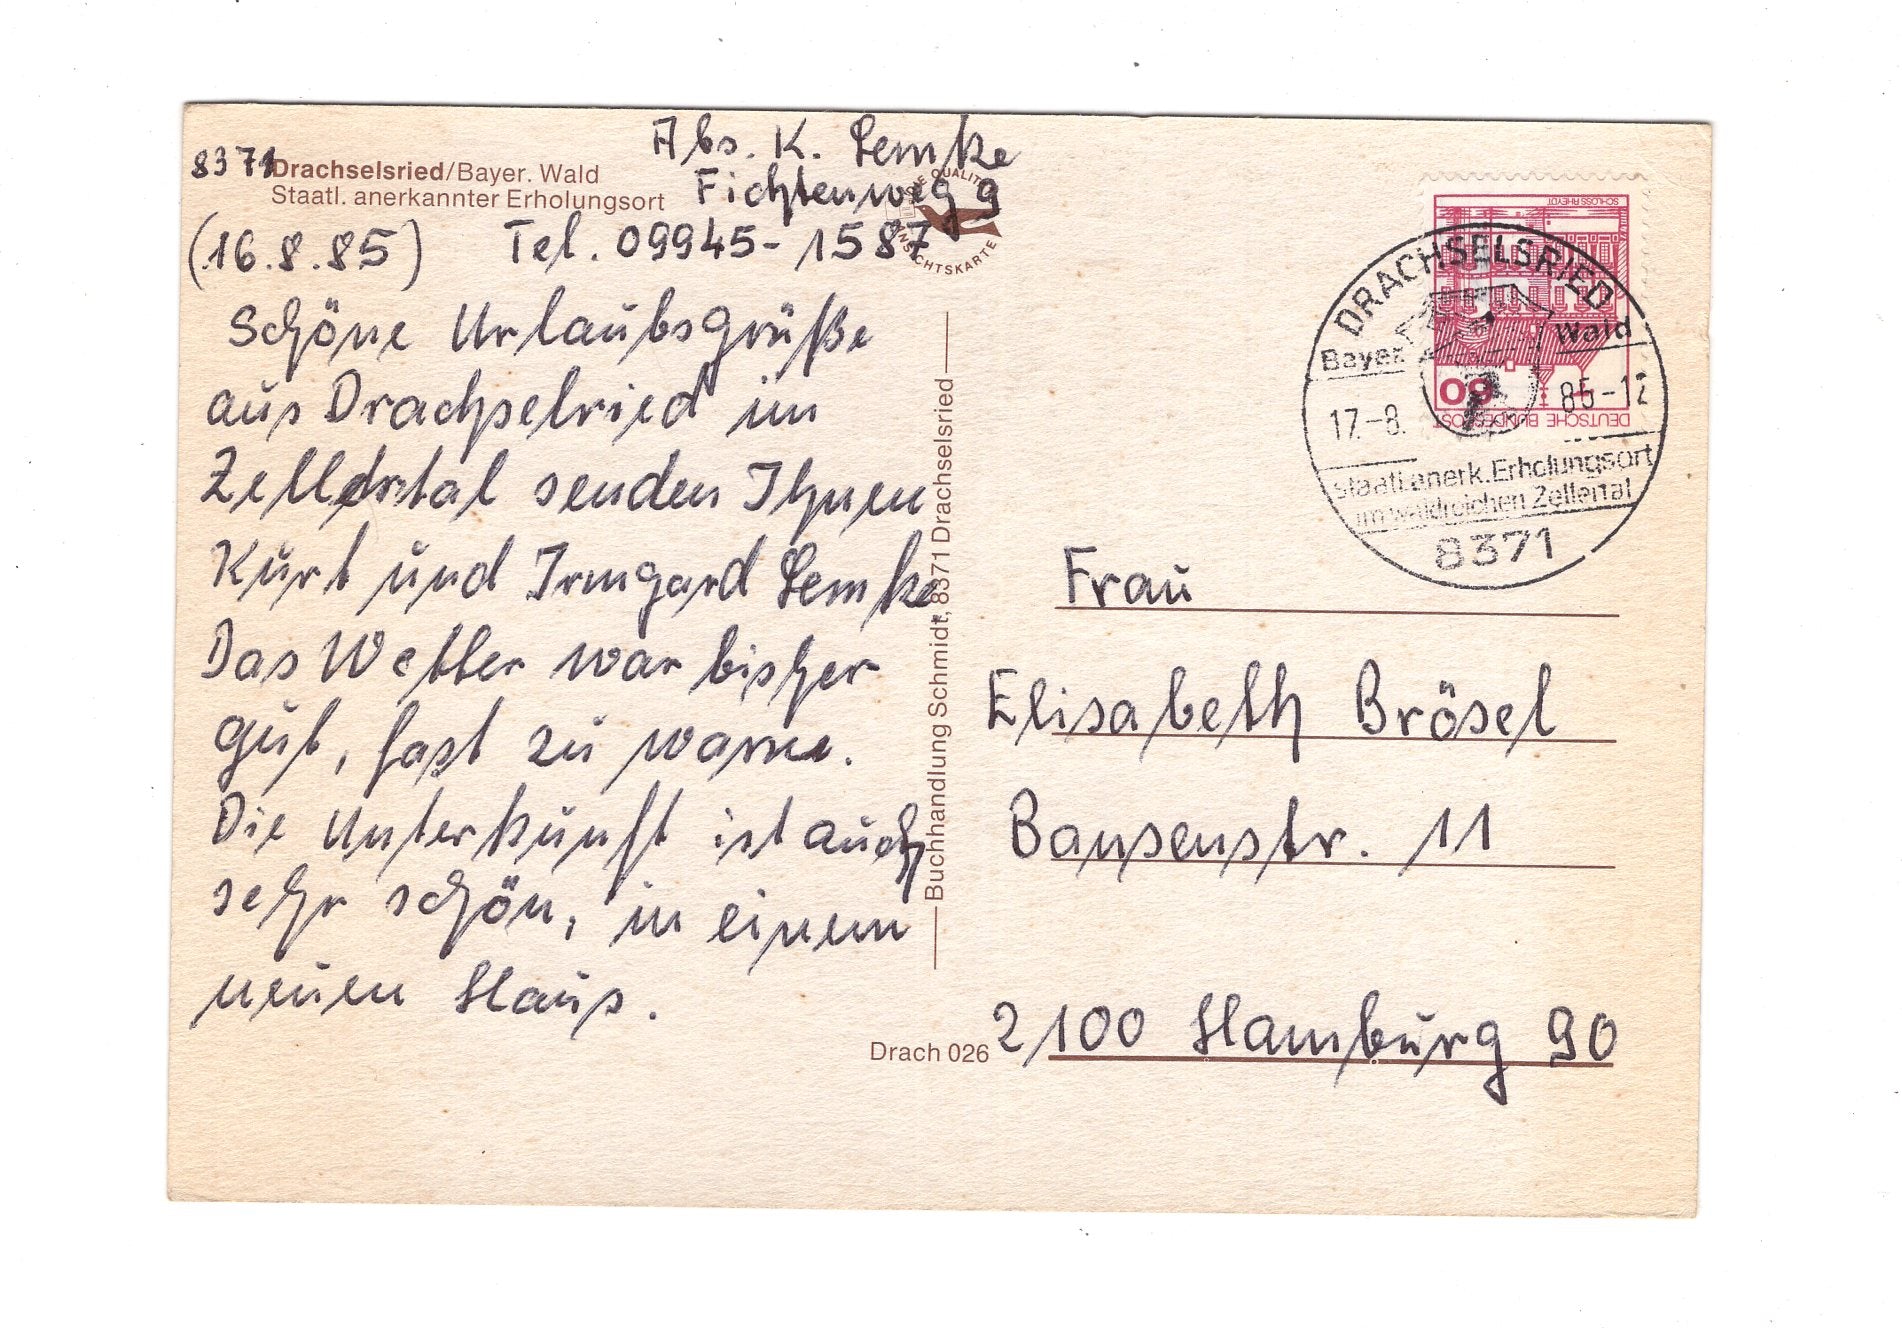 8371 Drachselsried/Bayer. Wald
Staatl. anerkannter Erholungsort
Abs. K. Lemke
Fichtenweg 9
(16.8.85) Tel. 09945-1587
DIE QUALITÄTS
ANSICHTSKARTE
Schöne Urlaubsgrüße
aus Drachselried im
Zellertal senden Ihnen
Kurt und Irmgard Lemke
Das Wetter war bisher
gut, fast zu warm.
Die Unterkunft ist auch
sehr schön, in einem
neuen Haus.
Buchhandlung Schmidt, 8371 Drachselsried
Drach 026
SCHLOSS RHEYDT
60
DEUTSCHE BUNDESPOST
DRACHSELSRIED
Bayer. Wald
17.-8. 85-12
Staatl. anerk. Erholungsort
im waldreichen Zellertal
8371
Frau
Elisabeth Brösel
Bansenstr. 11
2100 Hamburg 90